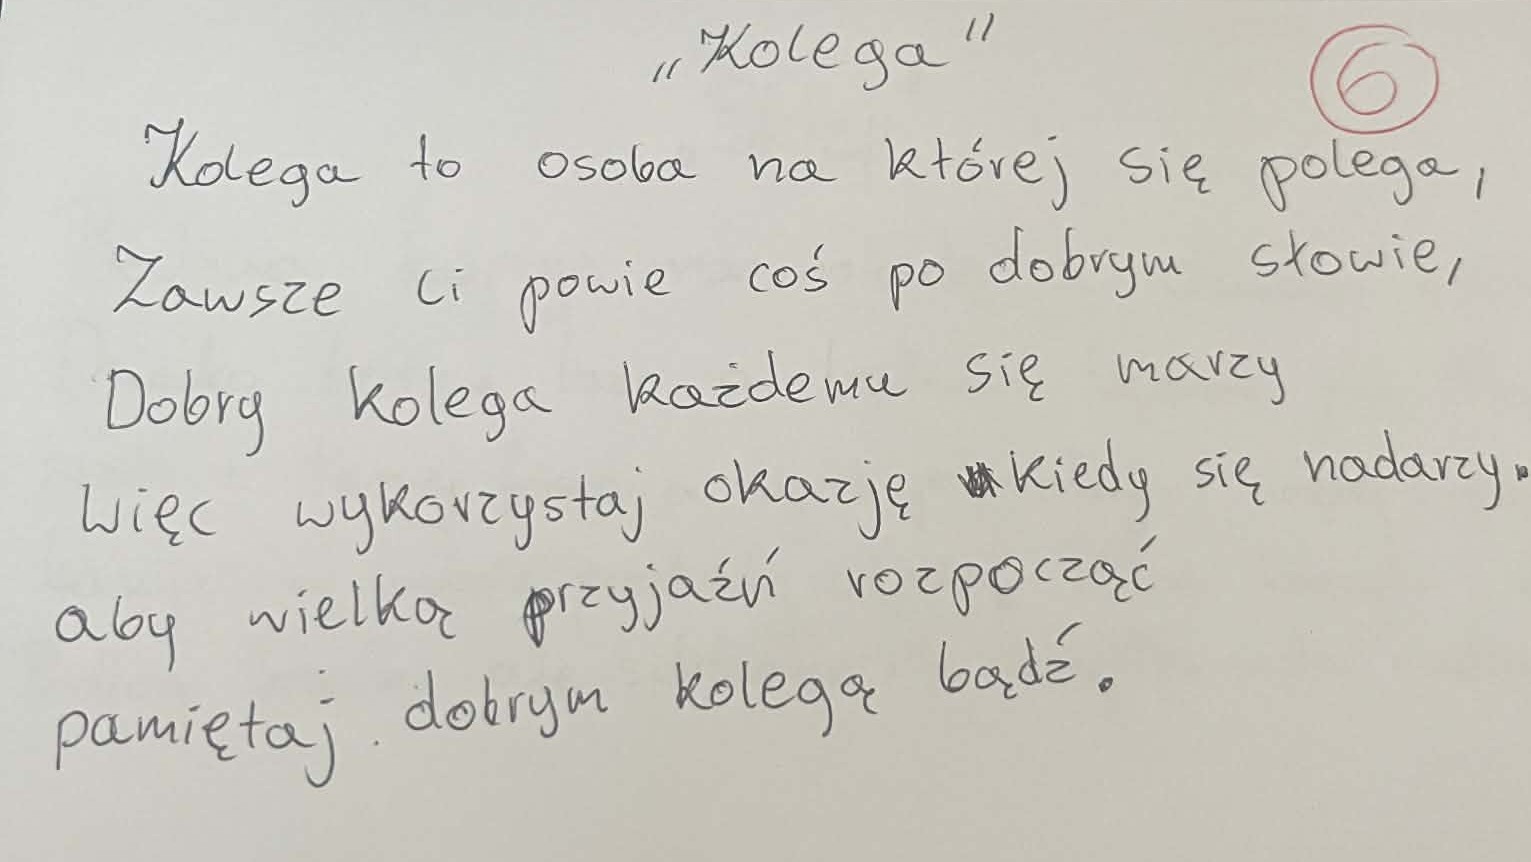 „Kolega"
6
Kolega to osoba na której się polega,
Zawsze ci powie coś po dobrym słowie,
Dobry kolega każdemu się marzy
Więc wykorzystaj okazję kiedy się nadarzy.
aby wielką przyjaźń rozpocząć
pamiętaj. dobrym kolegą bądź.